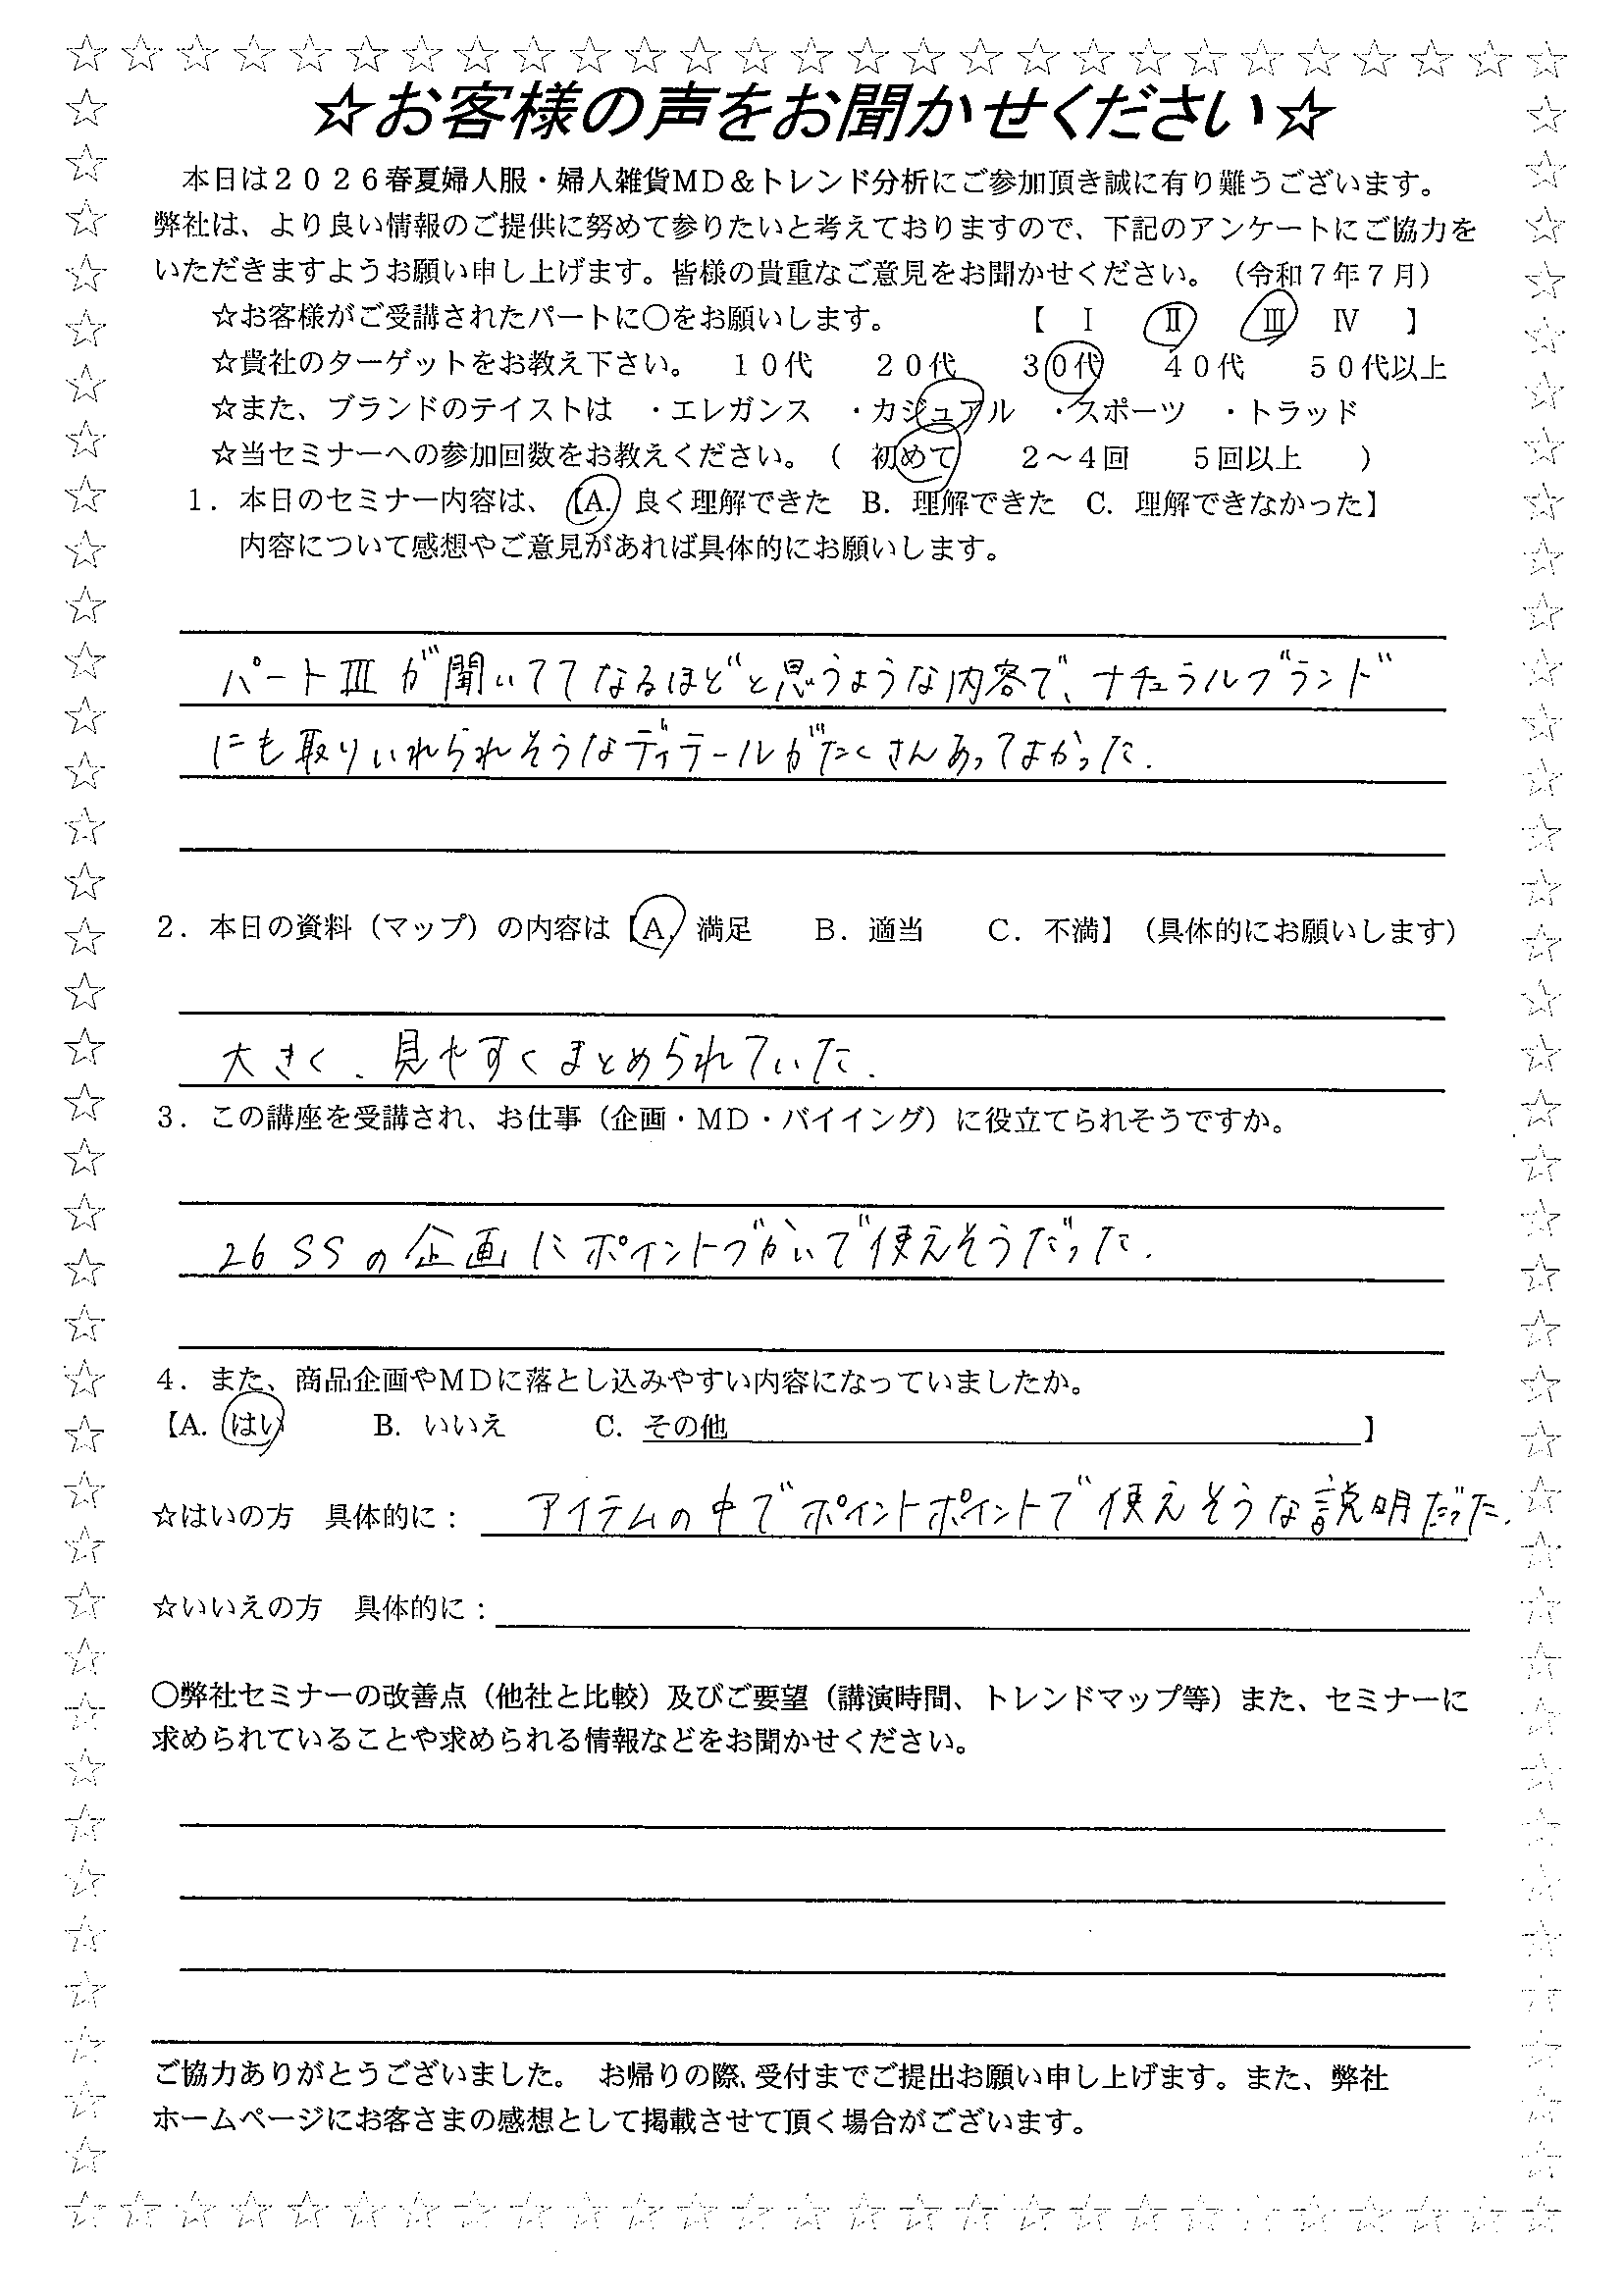 ☆お客様の声をお聞かせください☆
本日は２０２６春夏婦人服・婦人雑貨MD＆トレンド分析にご参加頂き誠に有り難うございます。
弊社は、より良い情報のご提供に努めて参りたいと考えておりますので、下記のアンケートにご協力を
いただきますようお願い申し上げます。皆様の貴重なご意見をお聞かせください。（令和７年７月）
☆お客様がご受講されたパートに〇をお願いします。　【　Ⅰ　Ⅱ　Ⅲ　Ⅳ　】
☆貴社のターゲットをお教え下さい。　１０代　２０代　３０代　４０代　５０代以上
☆また、ブランドのテイストは　・エレガンス　・カジュアル　・スポーツ　・トラッド
☆当セミナーへの参加回数をお教えください。（　初めて　２～４回　５回以上　）
１．本日のセミナー内容は、【A. 良く理解できた　B. 理解できた　C. 理解できなかった】
内容について感想やご意見があれば具体的にお願いします。
パートⅢが聞いててなるほどと思うような内容で、ナチュラルブランド
にも取りいれられそうなディテールがたくさんあってよかった.
２．本日の資料（マップ）の内容は【A. 満足　B．適当　C．不満】（具体的にお願いします）
大きく、見やすくまとめられていた.
３．この講座を受講され、お仕事（企画・MD・バイイング）に役立てられそうですか。
26 SSの企画にポイントづかいで使えそうだった.
４．また、商品企画やMDに落とし込みやすい内容になっていましたか。
【A. はい　B. いいえ　C. その他　】
☆はいの方　具体的に：　アイテムの中でポイントポイントで使えそうな説明だった.
☆いいえの方　具体的に：
〇弊社セミナーの改善点（他社と比較）及びご要望（講演時間、トレンドマップ等）また、セミナーに
求められていることや求められる情報などをお聞かせください。
ご協力ありがとうございました。　お帰りの際、受付までご提出お願い申し上げます。また、弊社
ホームページにお客さまの感想として掲載させて頂く場合がございます。